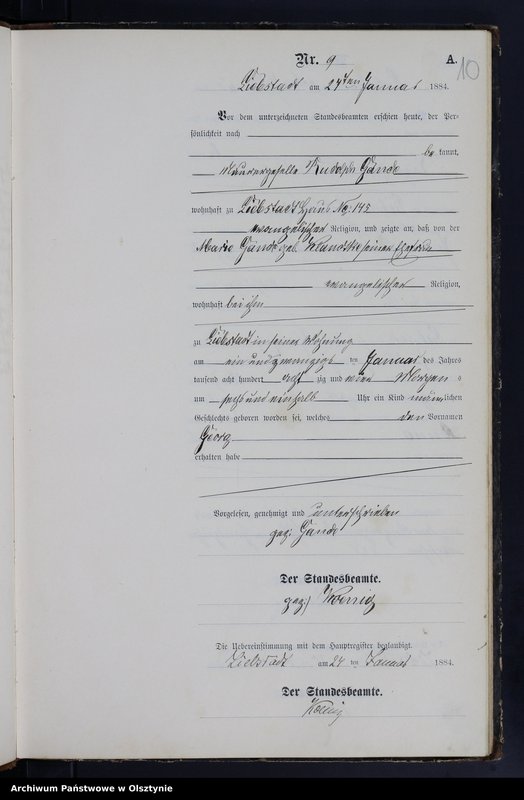 Nr. 9
A.
10
Liebstadt am 24ten Januar 1884.
Vor dem unterzeichneten Standesbeamten erschien heute, der Per-
sönlichkeit nach
be kannt,
Maurergeselle Rudolph Gande
wohnhaft zu Liebstadt Haus No: 145
evangelischer Religion, und zeigte an, daß von der
Marie Gande geb. seiner Ehefrau
evangelischer Religion,
wohnhaft bei ihm
zu Liebstadt in seiner Wohnung
am ein und zwanzigs ten Januar des Jahres
tausend acht hundert acht zig und vier Morgen s
um sechs und einhalb Uhr ein Kind männ lichen
Geschlechts geboren worden sei, welches den Vornamen
Georg
erhalten habe
Vorgelesen, genehmigt und unterschrieben
gez: Gande
Der Standesbeamte.
gez:)
Die Uebereinstimmung mit dem Hauptregister beglaubigt.
Liebstadt am 24 ten Januar 1884.
Der Standesbeamte.
Archiwum Państwowe w Olsztynie